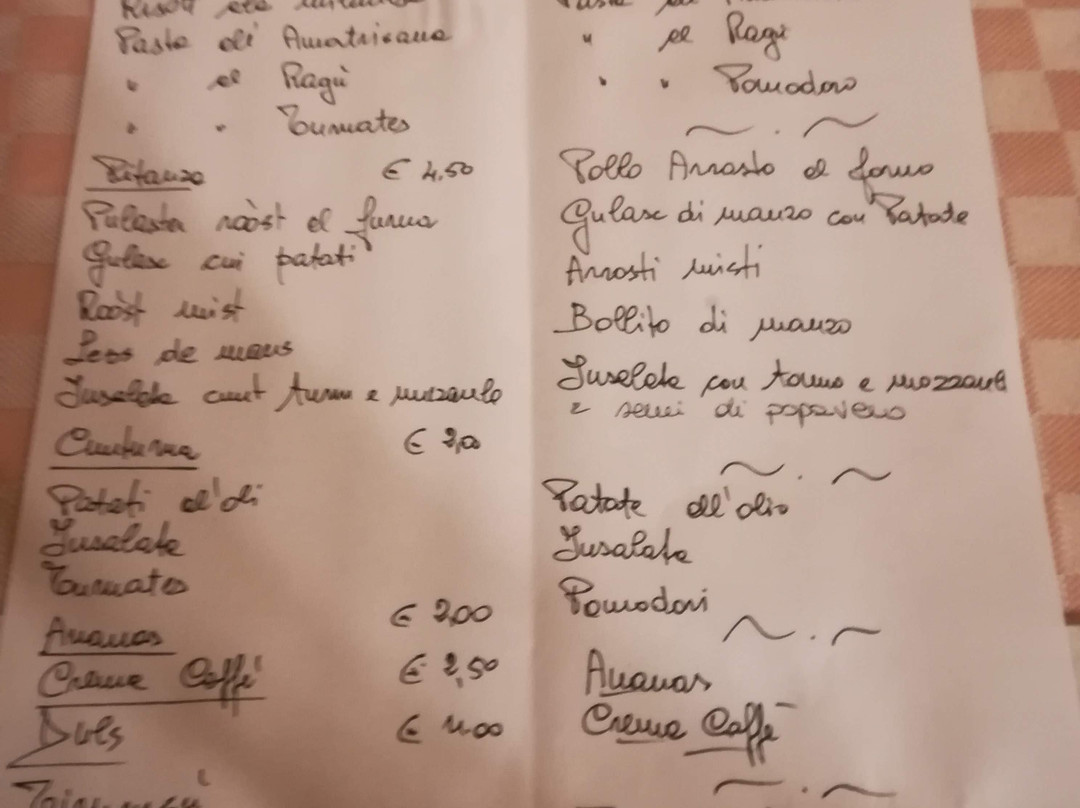 Pasta all' Amatriciana
" al Ragù
" " Tumates
Pitanza € 4,50
Pulaster ròòst al furno
Gulasc cui patati
Ròòst mist
Less de mans
Insalata cunt tunn e muzarele
Cunturna € 2,00
Patati al'oli
Insalata
Tumates
Ananas € 2,00
Crema Caffè € 2,50
Duls € 4,00
al Ragù
" al Ragù
" " Pomodoro
Pollo Arrosto al forno
Gulasc di manzo con Patate
Arrosti misti
Bollito di manzo
Insalata con tonno e mozzarella
e semi di papavero
Patate all'olio
Insalata
Pomodori
Ananas
Crema Caffè